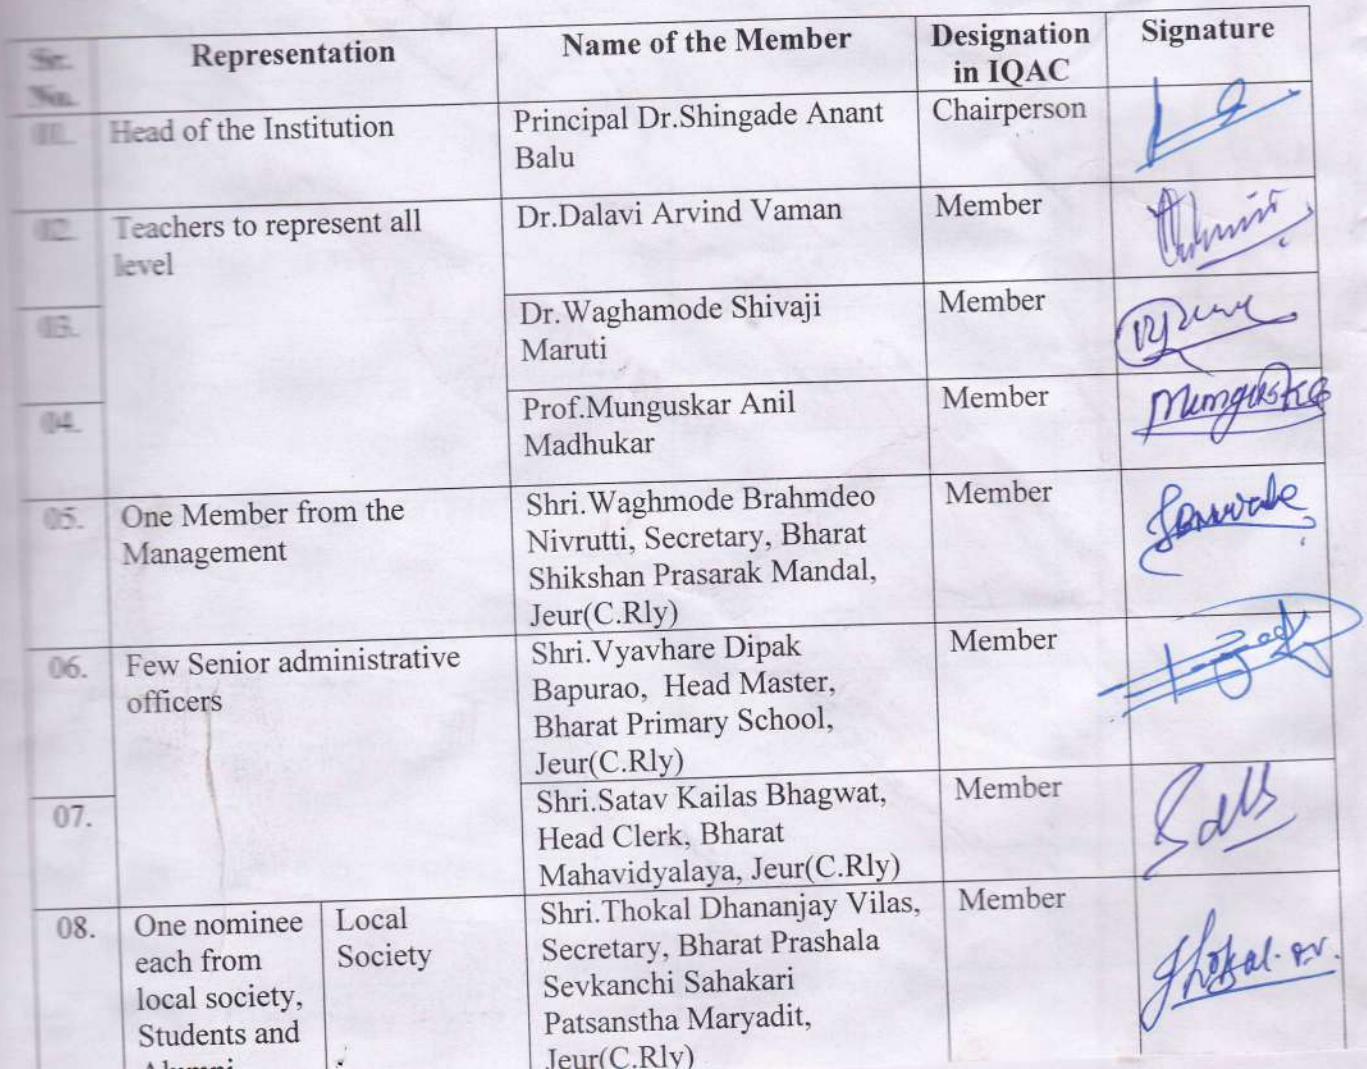 Sr. No. Representation Name of the Member Designation in IQAC Signature
01. Head of the Institution Principal Dr.Shingade Anant Balu Chairperson
02. Teachers to represent all level Dr.Dalavi Arvind Vaman Member
03. Dr.Waghamode Shivaji Maruti Member
04. Prof.Munguskar Anil Madhukar Member
05. One Member from the Management Shri.Waghmode Brahmdeo Nivrutti, Secretary, Bharat Shikshan Prasarak Mandal, Jeur(C.Rly) Member
06. Few Senior administrative officers Shri.Vyavhare Dipak Bapurao, Head Master, Bharat Primary School, Jeur(C.Rly) Member
07. Shri.Satav Kailas Bhagwat, Head Clerk, Bharat Mahavidyalaya, Jeur(C.Rly) Member
08. One nominee each from local society, Students and Alumni Local Society Shri.Thokal Dhananjay Vilas, Secretary, Bharat Prashala Sevkanchi Sahakari Patsanstha Maryadit, Jeur(C.Rly) Member